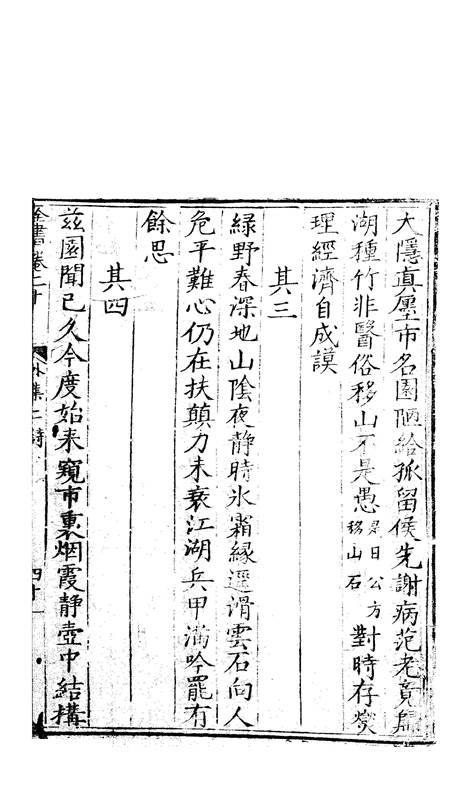 大隱真廛市名園陋給孤留侯先謝病范老竟歸
湖種竹非醫俗移山不是愚是日公方移山石對時存燮
理經濟自成謨
其三
緑野春深地山隂夜靜時氷霜緣逕滑雲石向人
危平難心仍在扶顛力未衰江湖兵甲滿吟罷有
餘思
其四
茲園聞已久今度始来窺市裏烟霞靜壺中結構
全書卷二十 外集二 詩 四十一